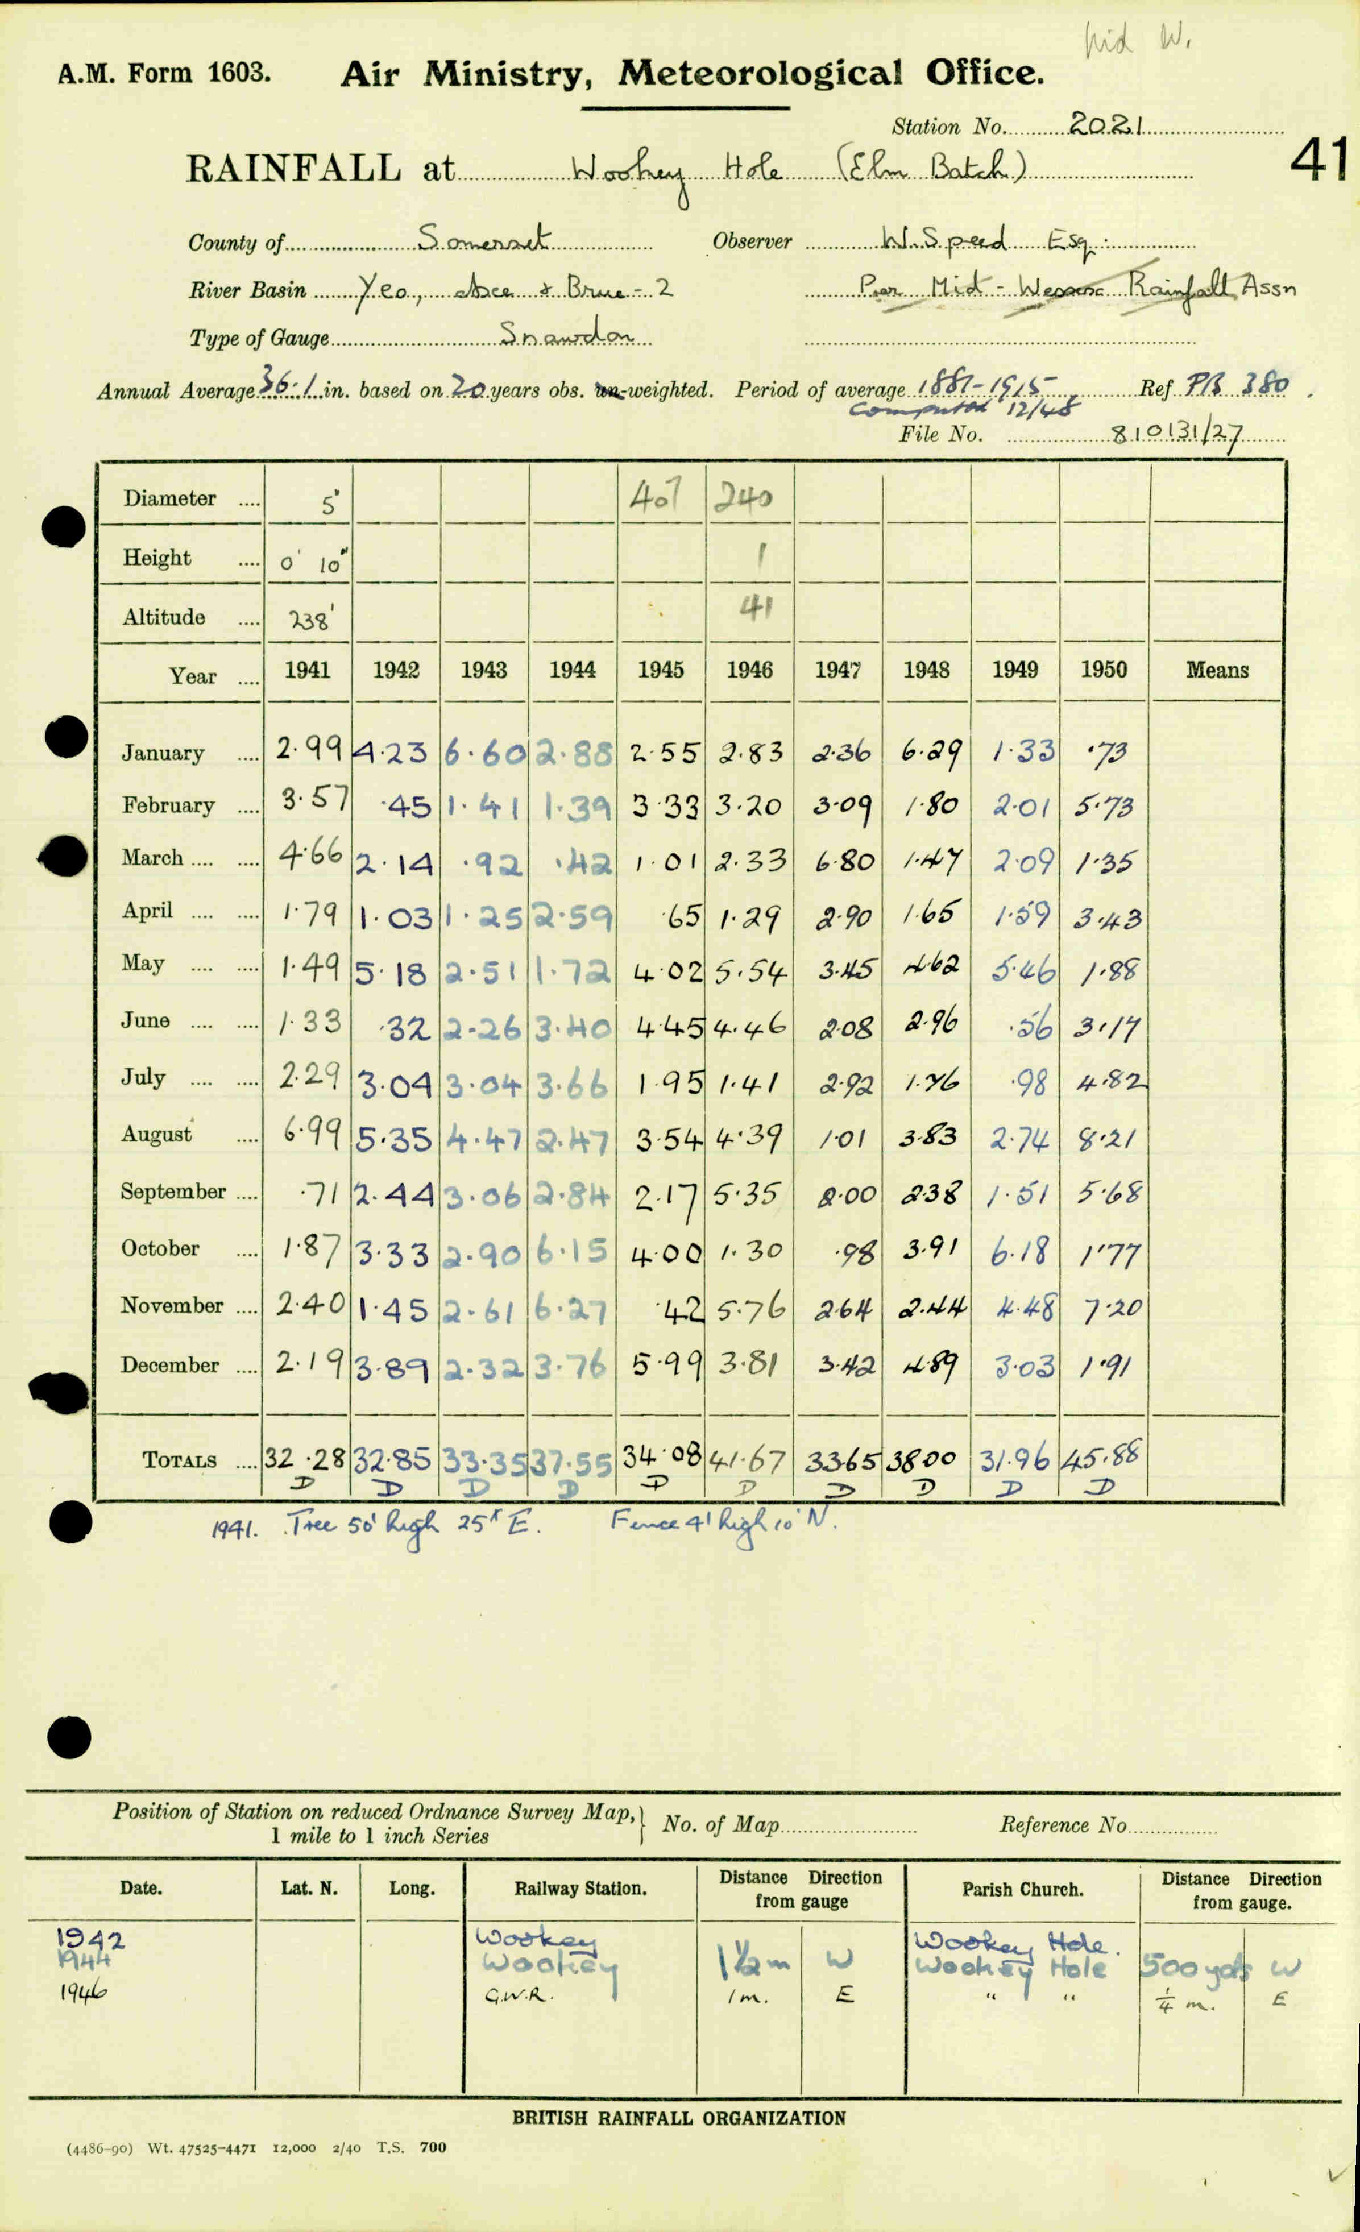 Mid W.
A.M. Form 1603. Air Ministry, Meteorological Office.
Station No. 2021
RAINFALL at Wookey Hole (Elm Batch) 41
County of Somerset Observer W. Speed Esq.
River Basin Yeo, Axe & Brue - 2 Per Mid - Wessex Rainfall Assn
Type of Gauge Snowdon
Annual Average 36.1 in. based on 20 years obs. un-weighted. Period of average 1881-1915 Ref PB 380.
Computed 12/48
File No. 810131/27
Diameter .... 5" 407 240
Height .... 0' 10" 1
Altitude .... 238' 41
Year .... 1941 1942 1943 1944 1945 1946 1947 1948 1949 1950 Means
January .... 2.99 4.23 6.60 2.88 2.55 2.83 2.36 6.29 1.33 .73
February .... 3.57 .45 1.41 1.39 3.33 3.20 3.09 1.80 2.01 5.73
March .... .... 4.66 2.14 .92 .42 1.01 2.33 6.80 1.47 2.09 1.35
April .... .... 1.79 1.03 1.25 2.59 .65 1.29 2.90 1.65 1.59 3.43
May .... .... 1.49 5.18 2.51 1.72 4.02 5.54 3.45 4.62 5.46 1.88
June .... .... 1.33 .32 2.26 3.40 4.45 4.46 2.08 2.96 .56 3.17
July .... .... 2.29 3.04 3.04 3.66 1.95 1.41 2.92 1.76 .98 4.82
August .... 6.99 5.35 4.47 2.47 3.54 4.39 1.01 3.83 2.74 8.21
September .... .71 2.44 3.06 2.84 2.17 5.35 2.00 2.38 1.51 5.68
October .... 1.87 3.33 2.90 6.15 4.00 1.30 .98 3.91 6.18 1.77
November .... 2.40 1.45 2.61 6.27 .42 5.76 2.64 2.44 4.48 7.20
December .... 2.19 3.89 2.32 3.76 5.99 3.81 3.42 4.89 3.03 1.91
TOTALS .... 32.28 32.85 33.35 37.55 34.08 41.67 33.65 38.00 31.96 45.88
D D D D D D D D D D
1941. Tree 50' high 25' E. Fence 4' high 10' N.
Position of Station on reduced Ordnance Survey Map, } No. of Map Reference No
1 mile to 1 inch Series
Date. Lat. N. Long. Railway Station. Distance Direction from gauge Parish Church. Distance Direction from gauge.
1942 Wookey Wookey Hole.
1944 Wookey 1½ m W Wookey Hole 500 yds W
1946 G.W.R. 1 m. E " " ¼ m. E
BRITISH RAINFALL ORGANIZATION
(4486-90) Wt. 47525-4471 12,000 2/40 T.S. 700